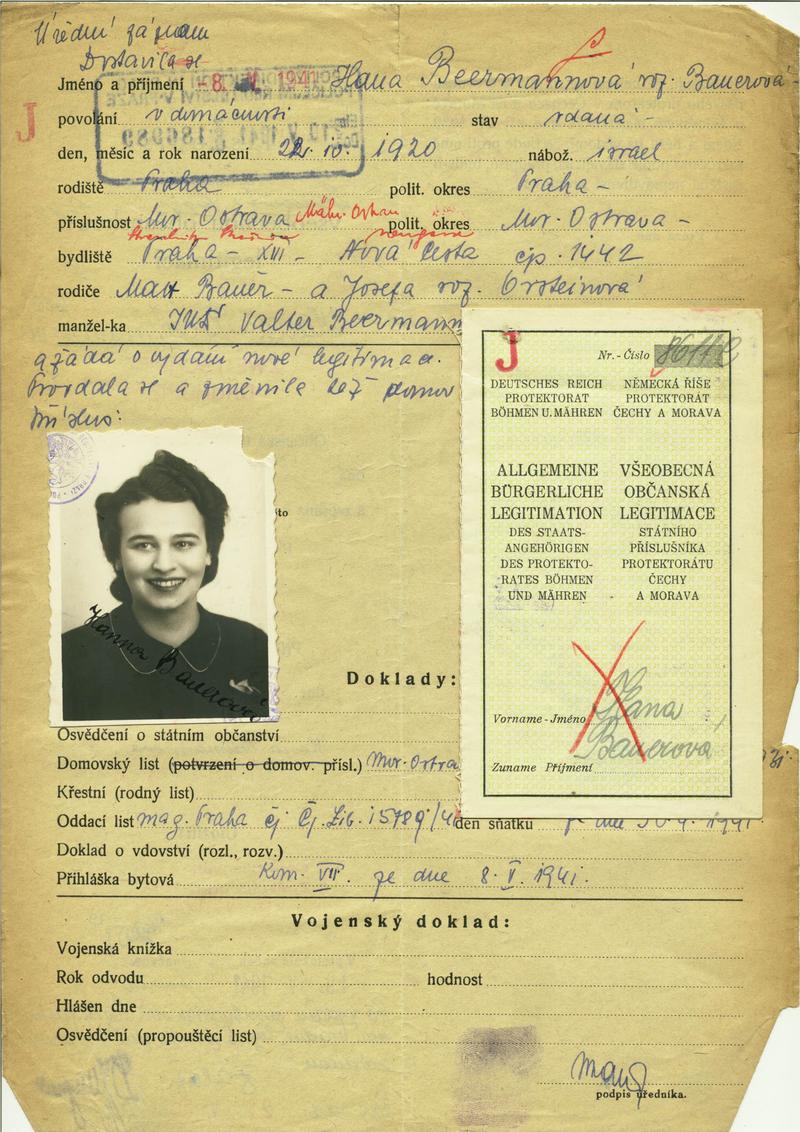 Úřední záznam
Dostavila se
Jméno a příjmení -8. V. 1941 Hana Beermannová roz. Bauerová
J
povolání v domácnosti stav vdaná -
den, měsíc a rok narození 22. IV. 1920 nábož. israel
rodiště Praha polit. okres Praha -
příslušnost Mor. Ostrava Mähr. Ostrau polit. okres Mor. Ostrava -
bydliště Praha - XVI - Nová Cesta čp. 1442
rodiče Max Bauer - a Josefa roz. Orsteinová
manžel-ka JUDr Valter Beermann
a žádá o vydání nové legitimace.
Provdala se a změnila též domov
příslus:
J
Nr. - Číslo
DEUTSCHES REICH NĚMECKÁ ŘÍŠE
PROTEKTORAT PROTEKTORÁT
BÖHMEN U. MÄHREN ČECHY A MORAVA
ALLGEMEINE VŠEOBECNÁ
BÜRGERLICHE OBČANSKÁ
LEGITIMATION LEGITIMACE
DES STAATS- STÁTNÍHO
ANGEHÖRIGEN PŘÍSLUŠNÍKA
DES PROTEKTO- PROTEKTORÁTU
RATES BÖHMEN ČECHY
UND MÄHREN - A MORAVA
Vorname - Jméno Hana
Bauerová
Zuname Příjmení
Hanna Bauerová
Doklady:
Osvědčení o státním občanství
Domovský list (potvrzení o domov. přísl.) Mor. Ostra
Křestní (rodný list)
Oddací list mag. Praha čj Čj. Lib. 15789/4 den sňatku
Doklad o vdovství (rozl., rozv.)
Přihláška bytová Kom. VII. ze dne 8. V. 1941.
Vojenský doklad:
Vojenská knížka
Rok odvodu hodnost
Hlášen dne
Osvědčení (propouštěcí list)
podpis úředníka.